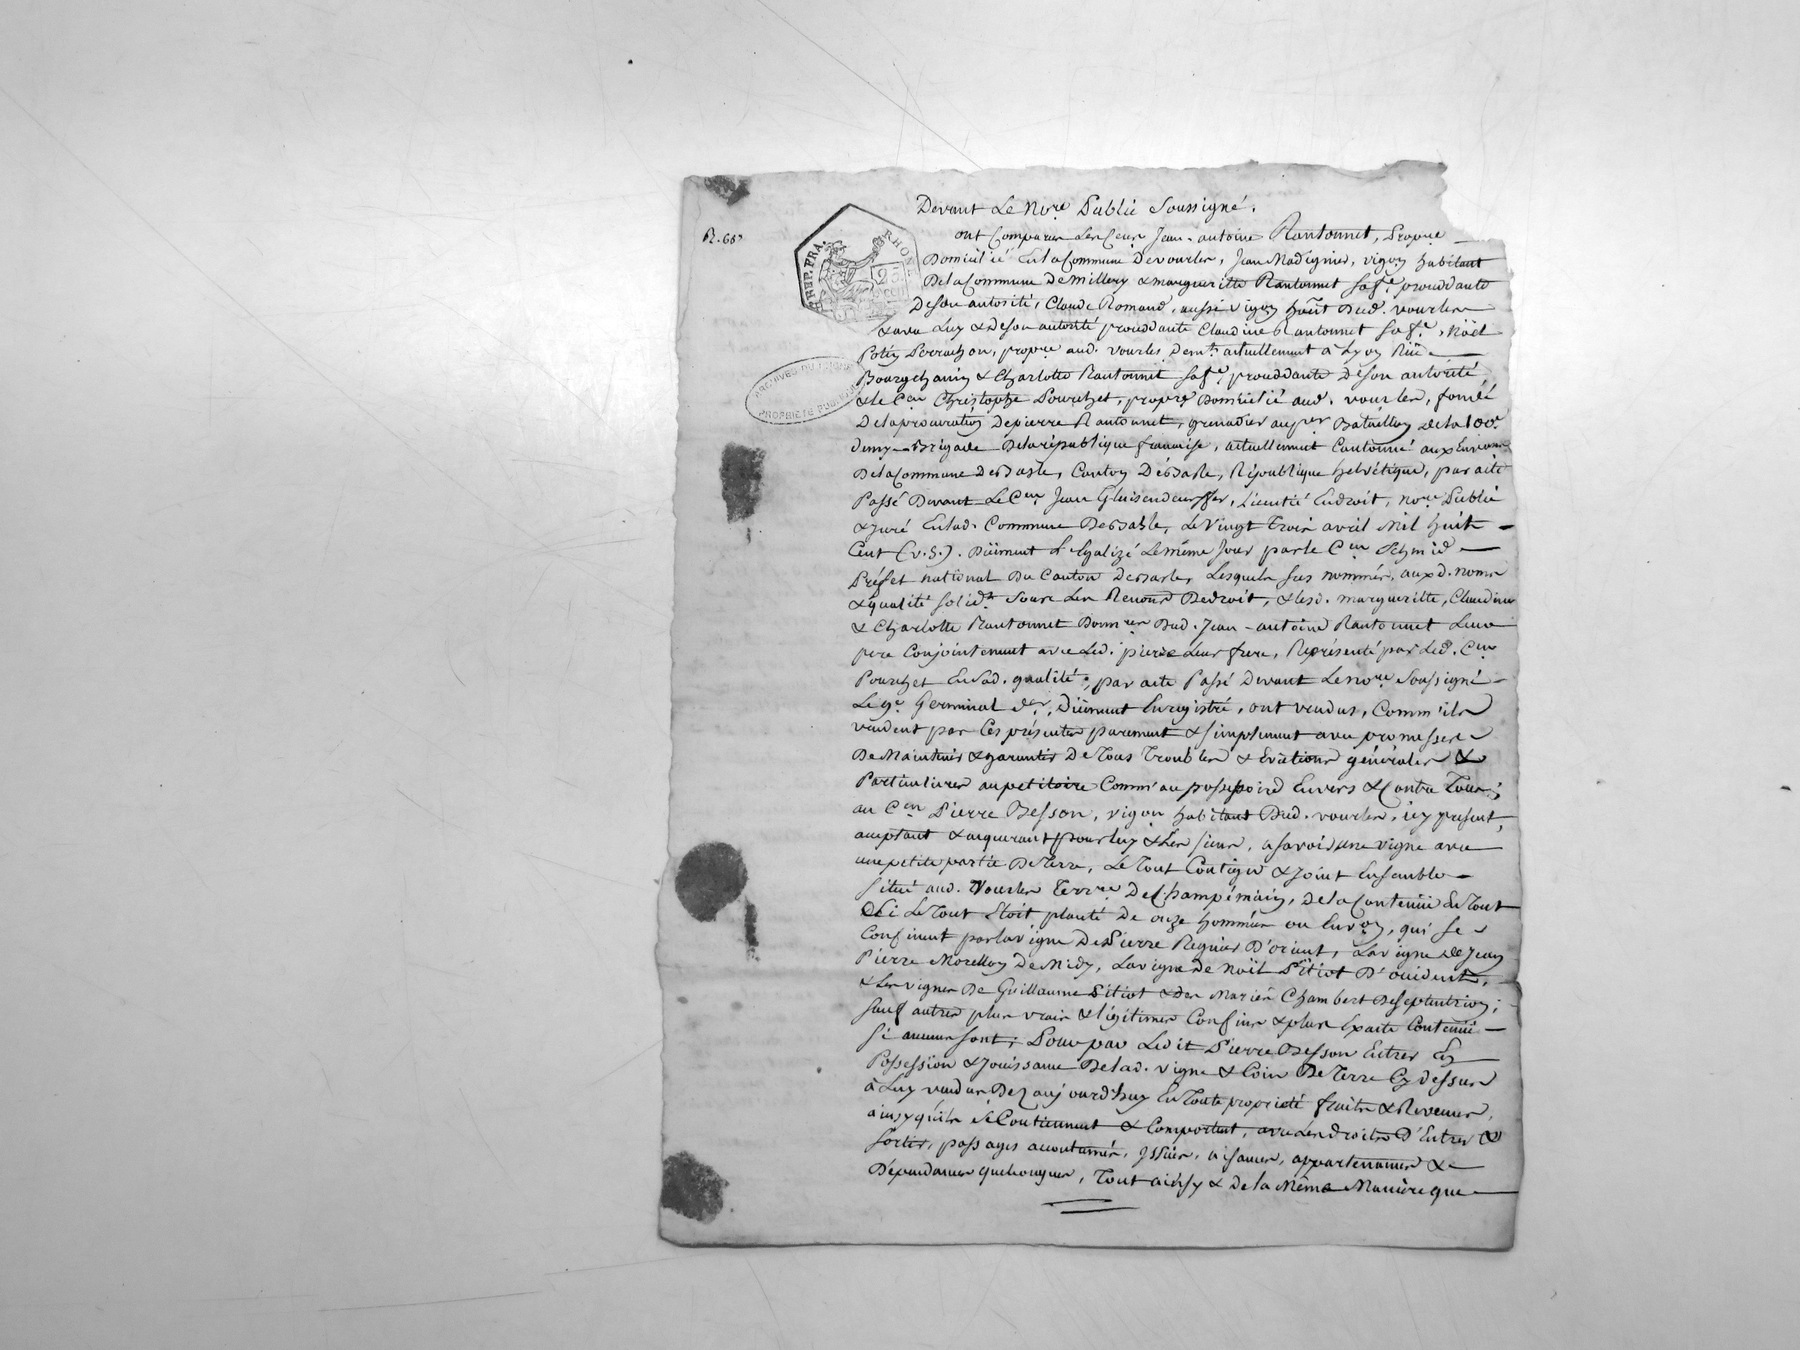 Devant Le Nore Public Soussigné.
R. 60
REP. FRA. RHONE
25
ont Comparus Les Cens Jean-antoine Rantonnet, Propre
Domicilié En la Commune de vourles, Jean Madignier, vigon habitant
De la Commune De Millery & margueritte Rantonnet sa fe. procédante
De son autorité, Claude Romand, aussi vigon habt Dud. vourles
& avec Luy & De son autorité procédante Claudine Rantonnet sa fe, Noël
Perrachon, propre aud. vourles demt actuellement à Lyon Rüe
Bourgchanin & Charlotte Rantonnet sa fe, procédante De son autorité,
& Le Cen Christophe Pourchet, propre Domicilié aud. vourles, fondé
De la procuration De pierre Rantonnet, grenadier au per Bataillon de la 100e
demy-Brigade De la république française, actuellement Cantonné aux Environs
De la Commune De Basle, Canton De Basle, République helvétique, par acte
Passé Devant Le Cen Jean Licentié En droit, nore Public
& Juré En lad. Commune De Basle, Le vingt Trois avril Mil huit
Cent (v.s.). Düement Légalizé Le même Jour par le Cen Schmid
Préfet national Du Canton De Basle, Lesquels sus nommés, aux d. noms
& qualité solidt sous Les Renons De droit, & lesd. margueritte, Claudine
& Charlotte Rantonnet Dud. Jean-antoine Rantonnet Leur
pere Conjointement avec Led. pierre Leur frere, Représenté par Led. Cen
Pourchet En sad. qualité, par acte Passé Devant Le nore Soussigné
Le 9e Germinal der, Düement Enregistré, ont vendus, Comm'ils
vendent par Ces présentes purement & simplement avec promesse
De Maintenir & garantir De Tous Troubles & Evictions générales &
Particulieres au petitoire Comm'au possessoire Envers & Contre Tous;
au Cen Pierre Besson, vigon habitant Dud. vourles, icy present,
acceptant & acquerant pour luy & Les siens, a savoir une vigne avec
une petite partie De Terre, Le Tout Contigu & Joint Ensemble
situé aud. Vourles Terrre De Champémain, De la Contenüe En Tout
si Le Tout étoit planté De onze hommées ou Envon, qui se
Confinent par la vigne De Pierre Regnier D'orient, La vigne de Jean
Pierre Morellon De Midy, La vigne De Noël Pitiot D'occident,
& Les vignes De Guillaume Pitiot & Des Mariés Chambert De septentrion;
sauf autres plus vrais & légitimes Confins & plus Exacte Contenüe
si aucuns sont; Pour par Ledit Pierre Besson Entrer En
Possession & Jouissance De lad. vigne & Coin De Terre Cy dessus
à Luy vendus Dez aujourd'huy En Toute propriété fruits & Revenus,
ainsy qu'ils se Contiennent & Comportent, avec Les droits D'Entrer &
sortir, passages accoutumés, Issües, aisances, appartenances &
Dépendances quelconques, Tout ainsy & De la Même Manière que
ARCHIVES DU RHÔNE
PROPRIÉTÉ PUBLIQUE